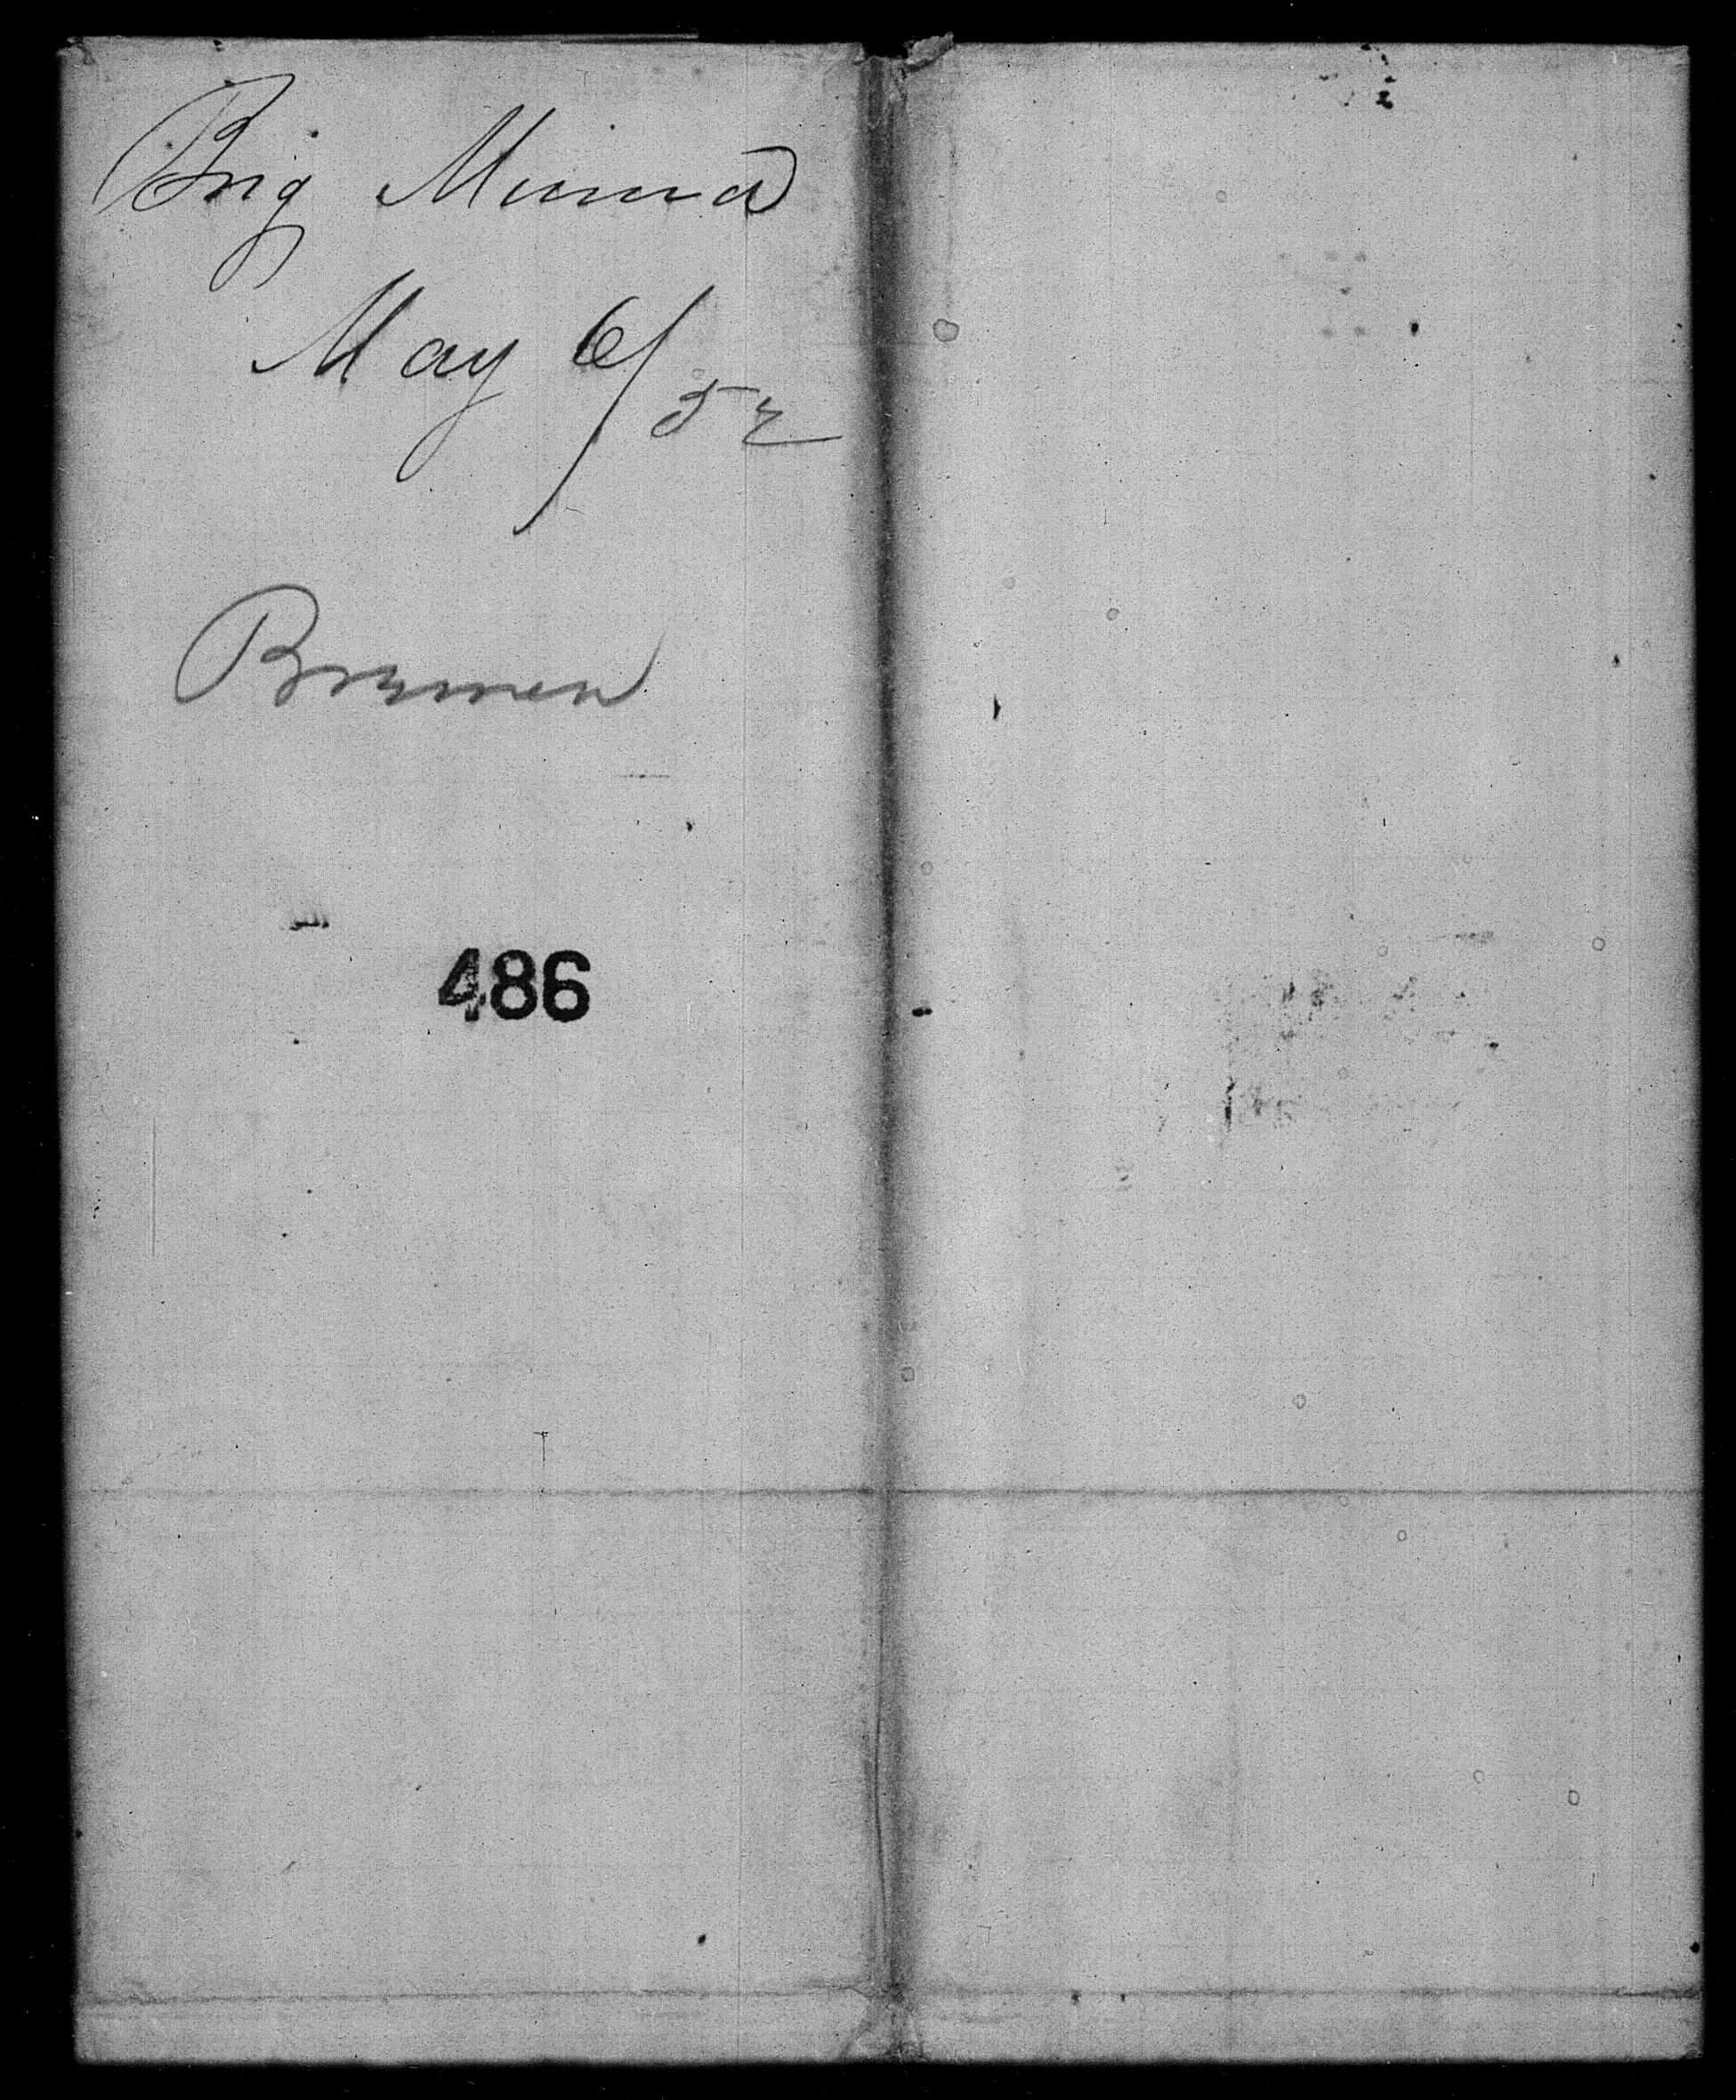 Brig Minna
May 6/52
Bremen
486